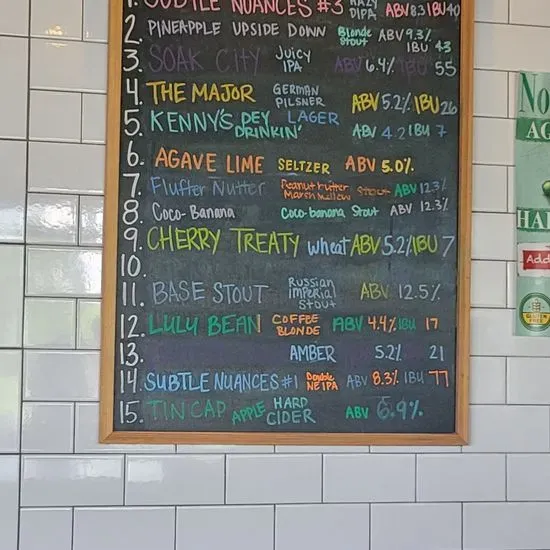 1. SUBTLE NUANCES #3 HAZY DIPA ABV 8.3 IBU 40
2. PINEAPPLE UPSIDE DOWN Blonde Stout ABV 9.3% IBU 43
3. SOAK CITY Juicy IPA ABV 6.4% IBU 55
4. THE MAJOR GERMAN PILSNER ABV 5.2% IBU 26
5. KENNY'S DEY DRINKIN' LAGER ABV 4.2 IBU 7
6. AGAVE LIME SELTZER ABV 5.0%
7. Fluffer Nutter Peanut butter Marshmallow Stout ABV 12.3%
8. Coco-Banana Coco-banana Stout ABV 12.3%
9. CHERRY TREATY wheat ABV 5.2% IBU 7
10.
11. BASE STOUT Russian imperial stout ABV 12.5%
12. LULU BEAN COFFEE BLONDE ABV 4.4% IBU 17
13. AMBER 5.2% 21
14. SUBTLE NUANCES #1 Double NEIPA ABV 8.3% IBU 77
15. TIN CAP APPLE HARD CIDER ABV 6.9%
Add
GLUTEN FREE